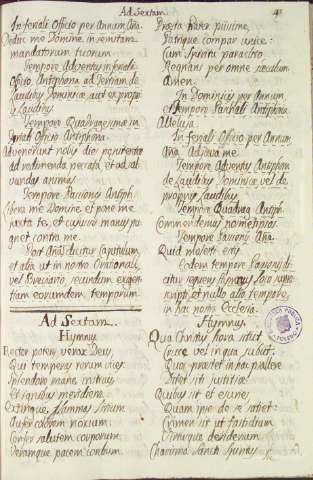 Ad Sextam.
In feriali Officio per Annum, Aña.
Deduc me Domine in semitam
mandatorum tuorum.
Tempore Adventus in feriali
Officio Antiphona ad Sextam de
Laudibus Dominicæ, aut ex proprijs
Laudibus.
Tempore Quadragesimæ in
feriali Officio Antiphona.
Advenerunt nobis dies pœnitentiæ
ad redimenda peccata, et ad sal-
vandas animas.
Tempore Passionis Antiph.
Libera me Domine et pone me
juxta te, et cujusvis manus pu-
gnet contra me.
Post Añã dicitur Capitulum,
et alia ut in nostro
vel Breviario, secundum exigen-
tiam eorumdem temporum.
Ad Sextam.
Hymnus
Rector potens, verax Deus,
Qui temperas rerum vices
Splendore mane instruis
Et ignibus meridiem.
Extingue flammas litium
Aufer calorem noxium.
Confer salutem corporum,
Veramque pacem cordium.
Præsta Pater piissime,
Patrique compar unice:
Cum Spiritu paraclito
Regnans per omne sæculum.
Amen.
In Dominicis per Annum,
et Tempore Paschali Antiphona
Alleluja.
In feriali Officio per Annum
Aña. Adjuva me.
Tempore Adventus Antiphona
de Laudibus Dominicæ vel de
proprijs Laudibus.
Tempore Quadrag. Antiph.
Commendemus nosmetipsos.
Tempore Passionis Aña.
Quid molesti estis
Eodem tempore Passionis di-
citur
et nullo alio tempore,
in hac nostra Ecclesia.
Hymnus.
Qua Christus hora sitiit
Crucem vel in qua subiit:
Quos præstat in hac psallere
Ditet siti justitiæ:
Quibus sit et esuries,
Quam ipse de se satiet:
Crimen sit ut fastidium
Virtusque desiderium
Charisma Sancti Spiritus